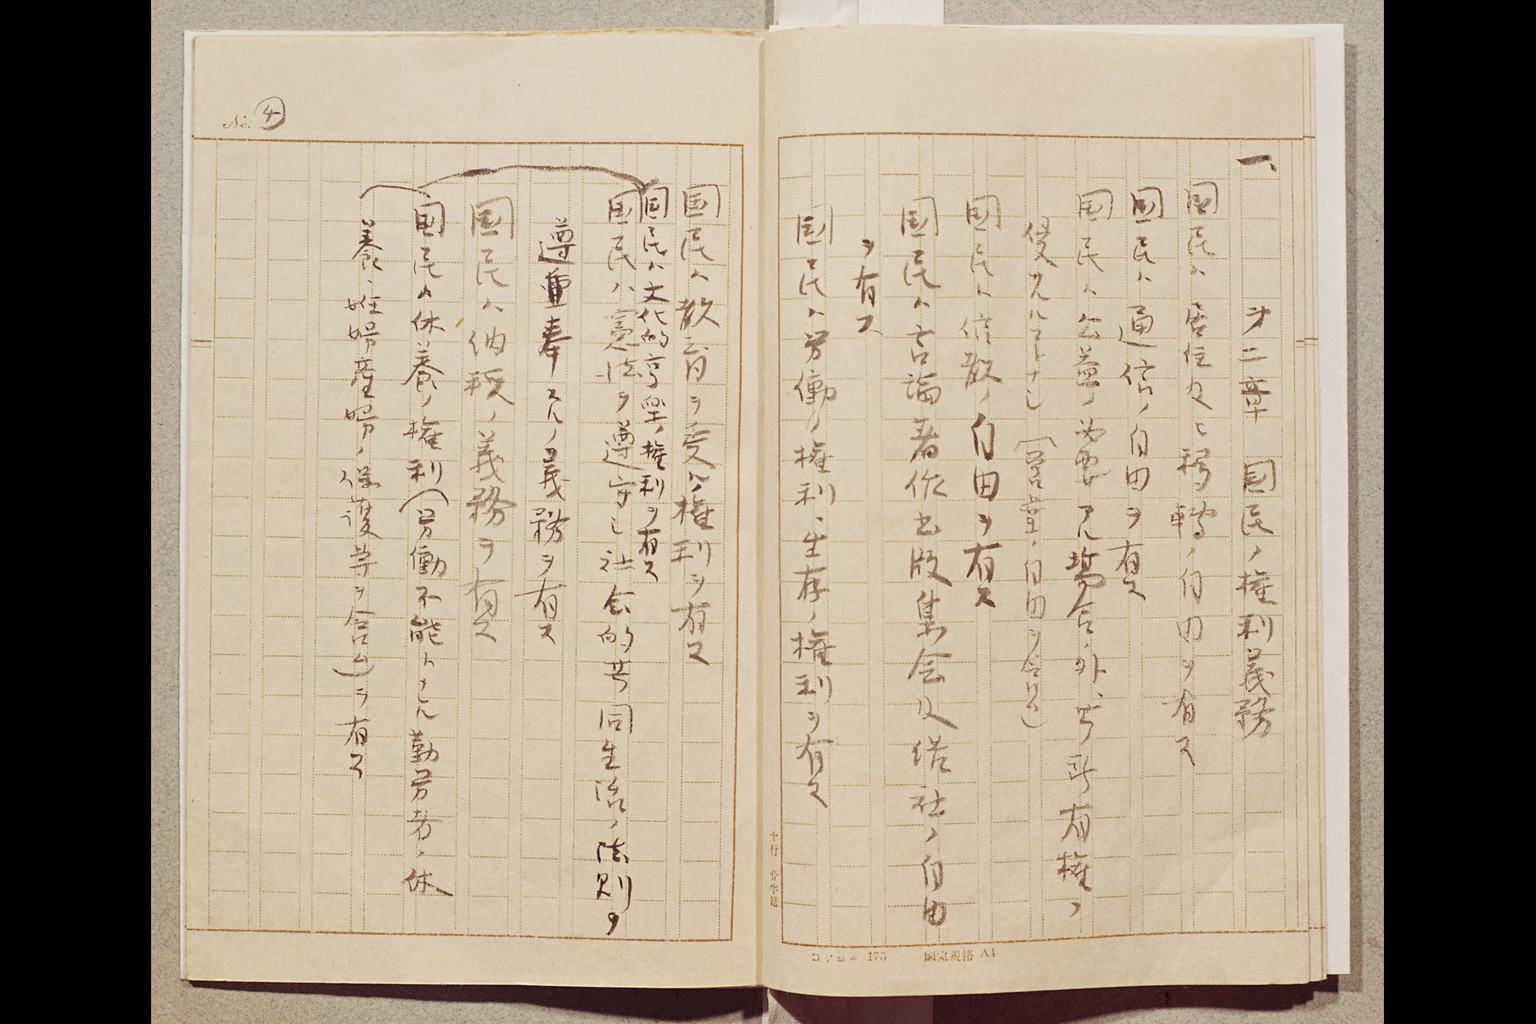 一、
第二章 国民ノ権利義務
国民ハ居住及ヒ移転ノ自由ヲ有ス
国民ハ通信ノ自由ヲ有ス
国民ハ公益ノ必要アル場合ノ外、其所有権ヲ
侵サルヽコトナシ(営業ノ自由ヲ含ム)
国民ハ信教ノ自由ヲ有ス
国民ハ言論著作出版集会及結社ノ自由
ヲ有ス
国民ハ労働ノ権利、生存ノ権利ヲ有ス
コクヨ 175 国定規格 A4
No. ④
国民ハ教育ヲ受クル権利ヲ有ス
国民ハ文化的享楽ノ権利ヲ有ス
国民ハ憲法ヲ遵守シ社会的共同生活ノ法則ヲ
遵重奉スルノ義務ヲ有ス
国民ハ納税ノ義務ヲ有ス
国民ハ休養ノ権利(労働不能トナレル勤労者ノ休
養、妊婦産婦ノ保護等ヲ含ム)ヲ有ス